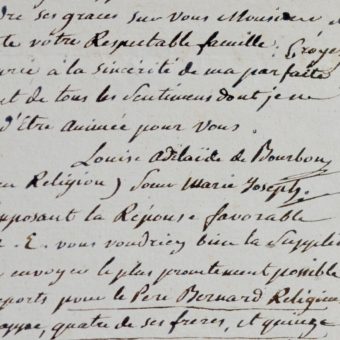 dre ses graces sur vous Monsieur
te votre Respectable famille. Croyez
rie à la sincérité de ma parfaite
t de tous les Sentimens dont je ne
d'être animée pour vous.
Louise Adélaïde de Bourbon,
en Religion) Sœur Marie Joseph.
pposant la Réponse favorable
. E. vous voudriez bien la Supplie
envoyer le plus promtement possible
eports pour le Pere Bernard Religieu
appe, quatre de ses freres, et quinze